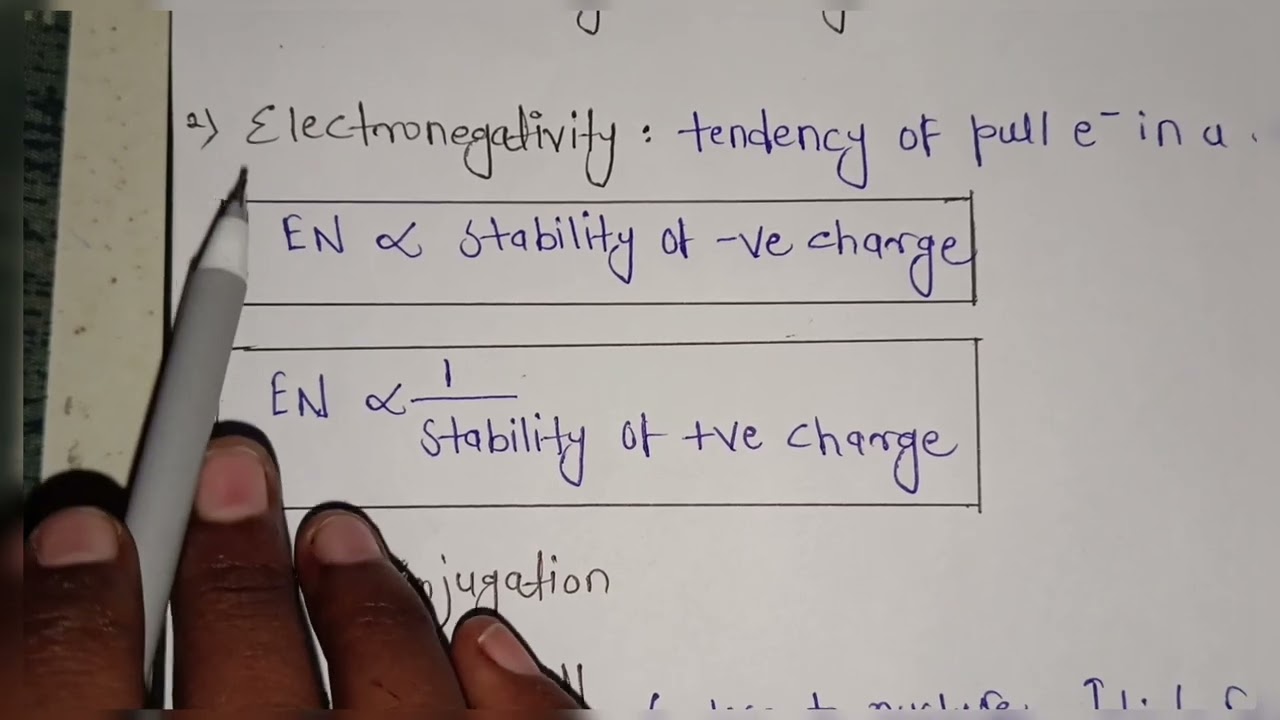 2) Electronegativity : tendency of pull e⁻ in a .
EN ∝ Stability of -ve charge
EN ∝ 1 / Stability of +ve charge
jugation